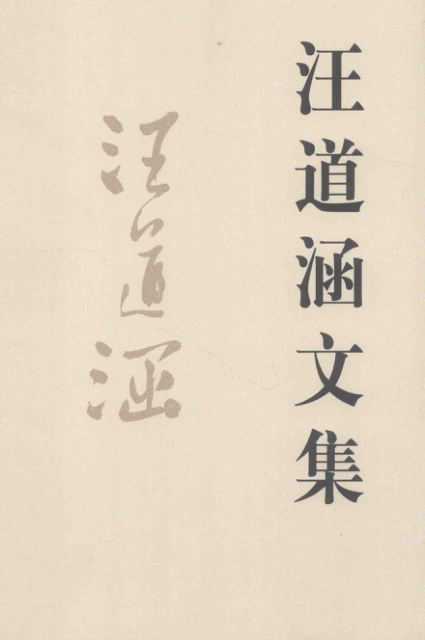 汪道涵文集
汪道涵